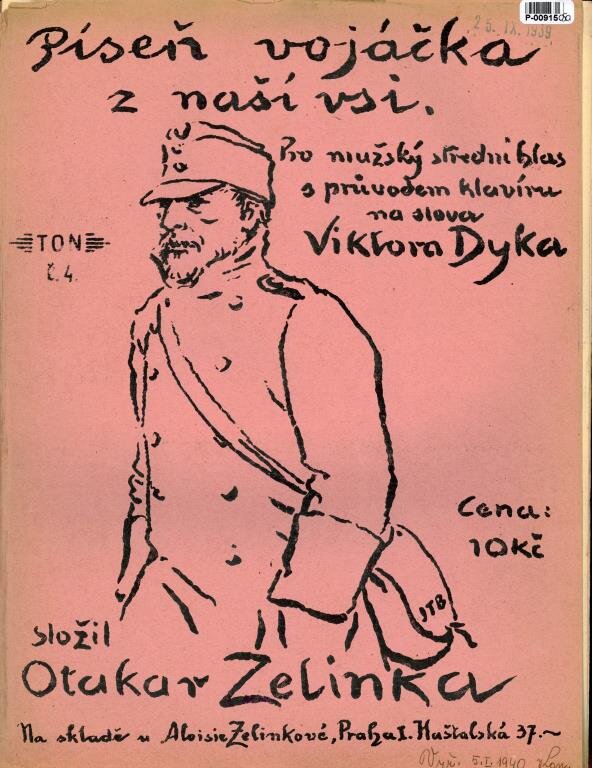 P-009150
25. IX. 1939
Píseň vojáčka
z naší vsi.
Pro mužský střední hlas
s průvodem klavíru
na slova
Viktora Dyka
TON
Č.4.
Cena:
10Kč
JTB
složil
Otakar Zelinka
Na skladě u Aloisie Zelinkové, Praha I. Haštalská 37.~
5.I.1940